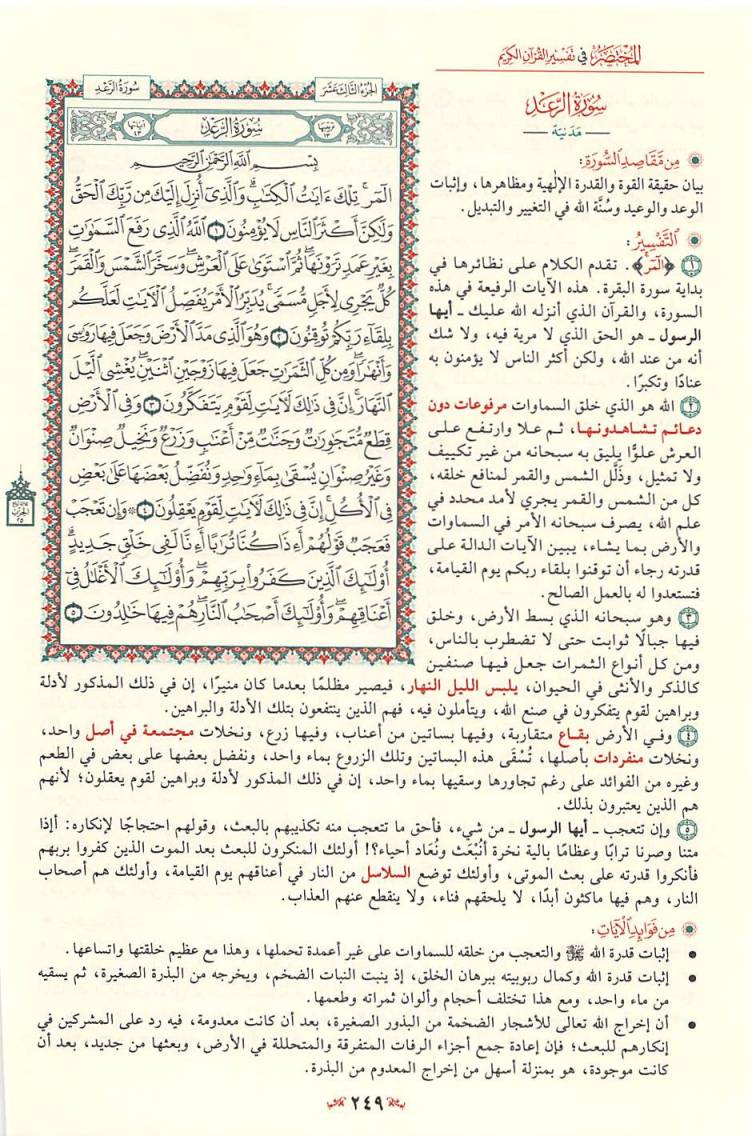 المختصر في تفسير القرآن الكريم
سورة الرعد
مدنية
من مقاصد السورة:
بيان حقيقة القوة والقدرة الإلهية ومظاهرها، وإثبات
الوعد والوعيد وسُنَّة الله في التغيير والتبديل.
التفسير:
١ ﴿الٓمٓر﴾. تقدم الكلام على نظائرها في
بداية سورة البقرة. هذه الآيات الرفيعة في هذه
السورة، والقرآن الذي أنزله الله عليك ـ أيها
الرسول ـ هو الحق الذي لا مرية فيه، ولا شك
أنه من عند الله، ولكن أكثر الناس لا يؤمنون به
عنادًا وتكبرًا.
٢ الله هو الذي خلق السماوات مرفوعات دون
دعائم تشاهدونها، ثم علا وارتفع على
العرش علوًّا يليق به سبحانه من غير تكييف
ولا تمثيل، وذَلَّل الشمس والقمر لمنافع خلقه،
كل من الشمس والقمر يجري لأمد محدد في
علم الله، يصرف سبحانه الأمر في السماوات
والأرض بما يشاء، يبين الآيات الدالة على
قدرته رجاء أن توقنوا بلقاء ربكم يوم القيامة،
فتستعدوا له بالعمل الصالح.
٣ وهو سبحانه الذي بسط الأرض، وخلق
فيها جبالًا ثوابت حتى لا تضطرب بالناس،
ومن كل أنواع الثمرات جعل فيها صنفين
كالذكر والأنثى في الحيوان، يلبس الليل النهار، فيصير مظلمًا بعدما كان منيرًا، إن في ذلك المذكور لأدلة
وبراهين لقوم يتفكرون في صنع الله، ويتأملون فيه، فهم الذين ينتفعون بتلك الأدلة والبراهين.
٤ وفي الأرض بقاع متقاربة، وفيها بساتين من أعناب، وفيها زرع، ونخلات مجتمعة في أصل واحد،
ونخلات منفردات بأصلها، تُسْقَى هذه البساتين وتلك الزروع بماء واحد، ونفضل بعضها على بعض في الطعم
وغيره من الفوائد على رغم تجاورها وسقيها بماء واحد، إن في ذلك المذكور لأدلة وبراهين لقوم يعقلون؛ لأنهم
هم الذين يعتبرون بذلك.
٥ وإن تتعجب ـ أيها الرسول ـ من شيء، فأحق ما تتعجب منه تكذيبهم بالبعث، وقولهم احتجاجًا لإنكاره: أإذا
متنا وصرنا ترابًا وعظامًا بالية نخرة أنُبْعَث ونُعَاد أحياء؟! أولئك المنكرون للبعث بعد الموت الذين كفروا بربهم
فأنكروا قدرته على بعث الموتى، وأولئك توضع السلاسل من النار في أعناقهم يوم القيامة، وأولئك هم أصحاب
النار، وهم فيها ماكثون أبدًا، لا يلحقهم فناء، ولا ينقطع عنهم العذاب.
من فوائد الآيات:
• إثبات قدرة الله ﷻ والتعجب من خلقه للسماوات على غير أعمدة تحملها، وهذا مع عظيم خلقتها واتساعها.
• إثبات قدرة الله وكمال ربوبيته ببرهان الخلق، إذ ينبت النبات الضخم، ويخرجه من البذرة الصغيرة، ثم يسقيه
من ماء واحد، ومع هذا تختلف أحجام وألوان ثمراته وطعمها.
• أن إخراج الله تعالى للأشجار الضخمة من البذور الصغيرة، بعد أن كانت معدومة، فيه رد على المشركين في
إنكارهم للبعث؛ فإن إعادة جمع أجزاء الرفات المتفرقة والمتحللة في الأرض، وبعثها من جديد، بعد أن
كانت موجودة، هو بمنزلة أسهل من إخراج المعدوم من البذرة.
الجزء الثالث عشر
سورة الرعد
ترتيبها ١٣
سورة الرعد
آياتها ٤٣
بِسْمِ اللَّهِ الرَّحْمَٰنِ الرَّحِيمِ
الٓمٓر ۚ تِلْكَ ءَايَٰتُ الْكِتَٰبِ ۗ وَالَّذِىٓ أُنزِلَ إِلَيْكَ مِن رَّبِّكَ الْحَقُّ
وَلَٰكِنَّ أَكْثَرَ النَّاسِ لَا يُؤْمِنُونَ ١ اللَّهُ الَّذِى رَفَعَ السَّمَٰوَٰتِ
بِغَيْرِ عَمَدٍ تَرَوْنَهَا ۖ ثُمَّ اسْتَوَىٰ عَلَى الْعَرْشِ ۖ وَسَخَّرَ الشَّمْسَ وَالْقَمَرَ ۖ
كُلٌّ يَجْرِى لِأَجَلٍ مُّسَمًّى ۚ يُدَبِّرُ الْأَمْرَ يُفَصِّلُ الْآيَٰتِ لَعَلَّكُم
بِلِقَآءِ رَبِّكُمْ تُوقِنُونَ ٢ وَهُوَ الَّذِى مَدَّ الْأَرْضَ وَجَعَلَ فِيهَا رَوَٰسِىَ
وَأَنْهَٰرًا ۖ وَمِن كُلِّ الثَّمَرَٰتِ جَعَلَ فِيهَا زَوْجَيْنِ اثْنَيْنِ ۖ يُغْشِى الَّيْلَ
النَّهَارَ ۚ إِنَّ فِى ذَٰلِكَ لَآيَٰتٍ لِّقَوْمٍ يَتَفَكَّرُونَ ٣ وَفِى الْأَرْضِ
قِطَعٌ مُّتَجَٰوِرَٰتٌ وَجَنَّٰتٌ مِّنْ أَعْنَٰبٍ وَزَرْعٌ وَنَخِيلٌ صِنْوَانٌ
وَغَيْرُ صِنْوَانٍ يُسْقَىٰ بِمَآءٍ وَٰحِدٍ وَنُفَضِّلُ بَعْضَهَا عَلَىٰ بَعْضٍ
فِى الْأُكُلِ ۚ إِنَّ فِى ذَٰلِكَ لَآيَٰتٍ لِّقَوْمٍ يَعْقِلُونَ ٤ ۞ وَإِن تَعْجَبْ
فَعَجَبٌ قَوْلُهُمْ أَءِذَا كُنَّا تُرَٰبًا أَءِنَّا لَفِى خَلْقٍ جَدِيدٍ ۗ
أُو۟لَٰٓئِكَ الَّذِينَ كَفَرُوا۟ بِرَبِّهِمْ ۖ وَأُو۟لَٰٓئِكَ الْأَغْلَٰلُ فِىٓ
أَعْنَاقِهِمْ ۖ وَأُو۟لَٰٓئِكَ أَصْحَٰبُ النَّارِ ۖ هُمْ فِيهَا خَٰلِدُونَ ٥
الحزب
٢٥
٢٤٩